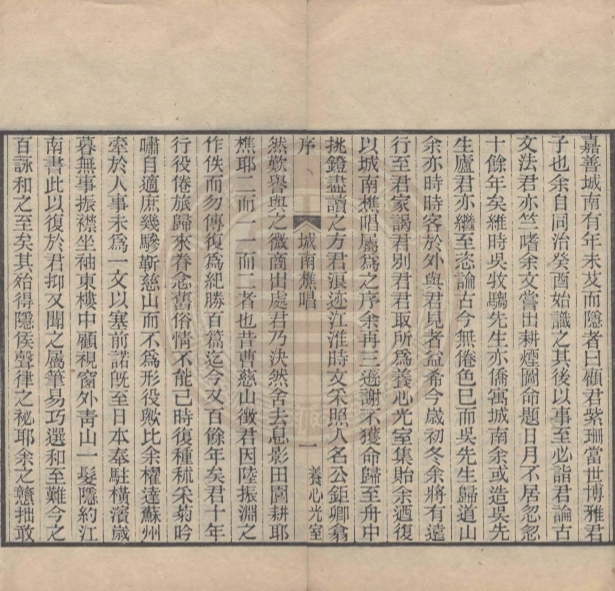 嘉善城南有年未艾而隱者曰顧君紫珊當世博雅君
子也余自同治癸酉始識之其後以事至必詣君論古
文法君亦竺嗜余文嘗出耕煙圖命題日月不居忽忽
十餘年矣維時吳牧騶先生亦僑寓城南余或造吳先
生廬君亦繼至恣論古今無倦色巳而吳先生歸道山
余亦時時客於外與君見者益希今歲初冬余將有遠
行至君家謁君別君君取所爲養心光室集貽余迺復
以城南樵唱屬爲之序余再三遜謝不獲命歸至舟中
挑鐙盡讀之方君浪迹江淮時文采照人名公鉅卿翕
序
城南樵唱
一
養心光室
然歎譽與之微商出處君乃決然舍去息影田園耕耶
樵耶二而一一而二者也昔曹慈山徵君因陸振淵之
作佚而勿傳復爲紀勝百篇迄今又百餘年矣君十年
行役倦旅歸來眷念舊俗情不能已時復種秫采菊吟
嘯自適庶幾驂靳慈山而不爲形役歟比余櫂達蘇州
牽於人事未爲一文以塞前諾旣至日本奉駐橫濱歲
暮無事振襟坐袖東樓中顧視窗外青山一髮隱約江
南書此以復於君抑又聞之屬筆易巧選和至難今之
百詠和之至矣其殆得隱侯聲律之祕耶余之戇拙敢